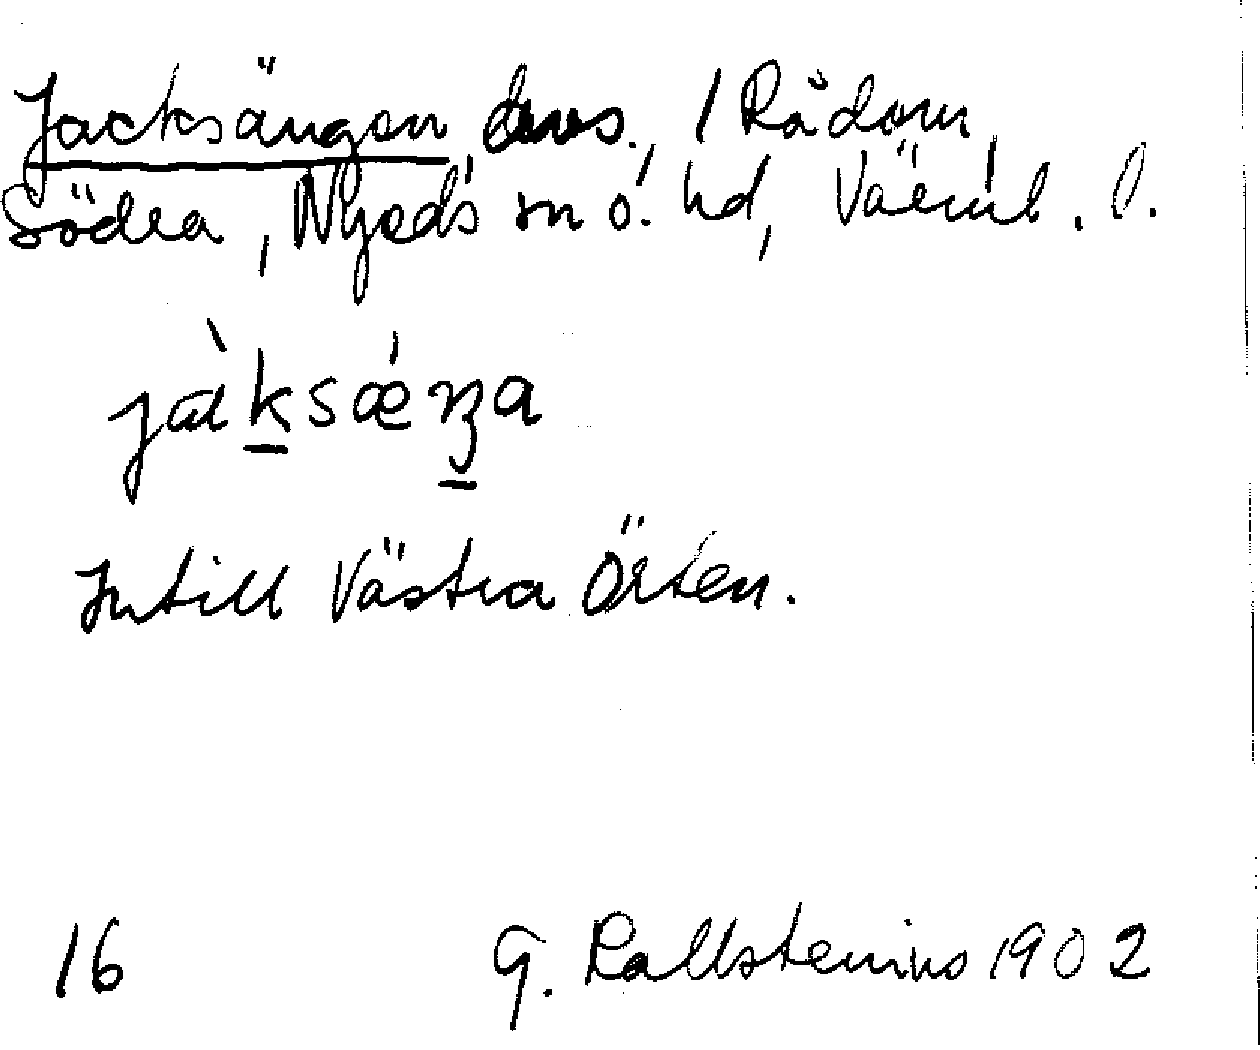 Jacksängen, dens., 1 Rådom,
Södra, Nyeds sn o. hd, Värml. l.
jàksǽŋa
Intill Västra Örten.
16 G. Kallstenius 1902